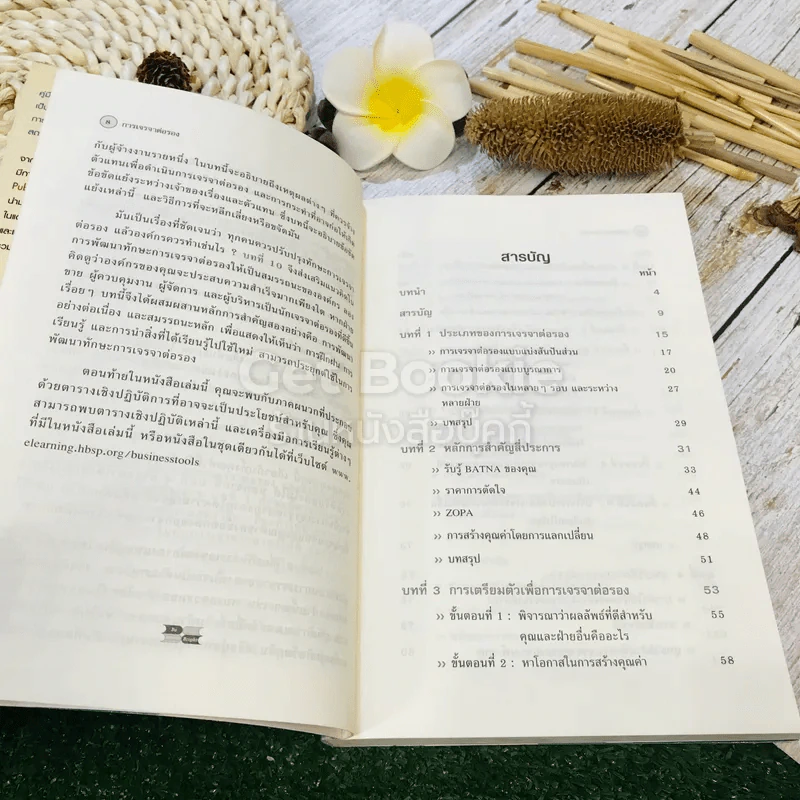 8 การเจรจาต่อรอง
กับผู้จ้างงานรายหนึ่ง ในบทนี้จะอธิบายถึงเหตุผลต่างๆ ที่ควรจ้าง
ตัวแทนเพื่อดำเนินการเจรจาต่อรอง และการกระทำที่อาจก่อให้เกิด
ข้อขัดแย้งระหว่างเจ้าของเรื่องและตัวแทน ซึ่งบทนี้จะอธิบายข้อขัด
แย้งเหล่านี้ และวิธีการที่จะหลีกเลี่ยงหรือขจัดมัน
มันเป็นเรื่องที่ชัดเจนว่า ทุกคนควรปรับปรุงทักษะการเจรจา
ต่อรอง แล้วองค์กรควรทำเช่นไร ? บทที่ 10 จึงส่งเสริมแนวคิดใน
การพัฒนาทักษะการเจรจาต่อรองให้เป็นสมรรถนะขององค์กร ลอง
คิดดูว่าองค์กรของคุณจะประสบความสำเร็จมากเพียงใด หากฝ่าย
ขาย ผู้ควบคุมงาน ผู้จัดการ และผู้บริหารเป็นนักเจรจาต่อรองที่ดีขึ้น
เรื่อยๆ บทนี้จึงได้ผสมผสานหลักการสำคัญสองอย่างคือ การพัฒนา
อย่างต่อเนื่อง และสมรรถนะหลัก เพื่อแสดงให้เห็นว่า การฝึกฝน การ
เรียนรู้ และการนำสิ่งที่ได้เรียนรู้ไปใช้ใหม่ สามารถประยุกต์ใช้ในการ
พัฒนาทักษะการเจรจาต่อรอง
ตอนท้ายในหนังสือเล่มนี้ คุณจะพบกับภาคผนวกที่ประกอบ
ด้วยตารางเชิงปฏิบัติการที่อาจจะเป็นประโยชน์สำหรับคุณ ซึ่งคุณ
สามารถพบตารางเชิงปฏิบัติเหล่านี้ และเครื่องมือการเรียนรู้ต่างๆ
ที่มีในหนังสือเล่มนี้ หรือหนังสือในชุดเดียวกันได้ที่เว็บไซต์ www.
elearning.hbsp.org/businesstools
สารบัญ
หน้า
บทนำ 4
สารบัญ 9
บทที่ 1 ประเภทของการเจรจาต่อรอง 15
›› การเจรจาต่อรองแบบแบ่งสันปันส่วน 17
›› การเจรจาต่อรองแบบบูรณาการ 20
›› การเจรจาต่อรองในหลายๆ รอบ และระหว่าง 27
หลายฝ่าย
›› บทสรุป 29
บทที่ 2 หลักการสำคัญสี่ประการ 31
›› รับรู้ BATNA ของคุณ 33
›› ราคาการตัดใจ 44
›› ZOPA 46
›› การสร้างคุณค่าโดยการแลกเปลี่ยน 48
›› บทสรุป 51
บทที่ 3 การเตรียมตัวเพื่อการเจรจาต่อรอง 53
›› ขั้นตอนที่ 1 : พิจารณาว่าผลลัพธ์ที่ดีสำหรับ 55
คุณและฝ่ายอื่นคืออะไร
›› ขั้นตอนที่ 2 : หาโอกาสในการสร้างคุณค่า 58